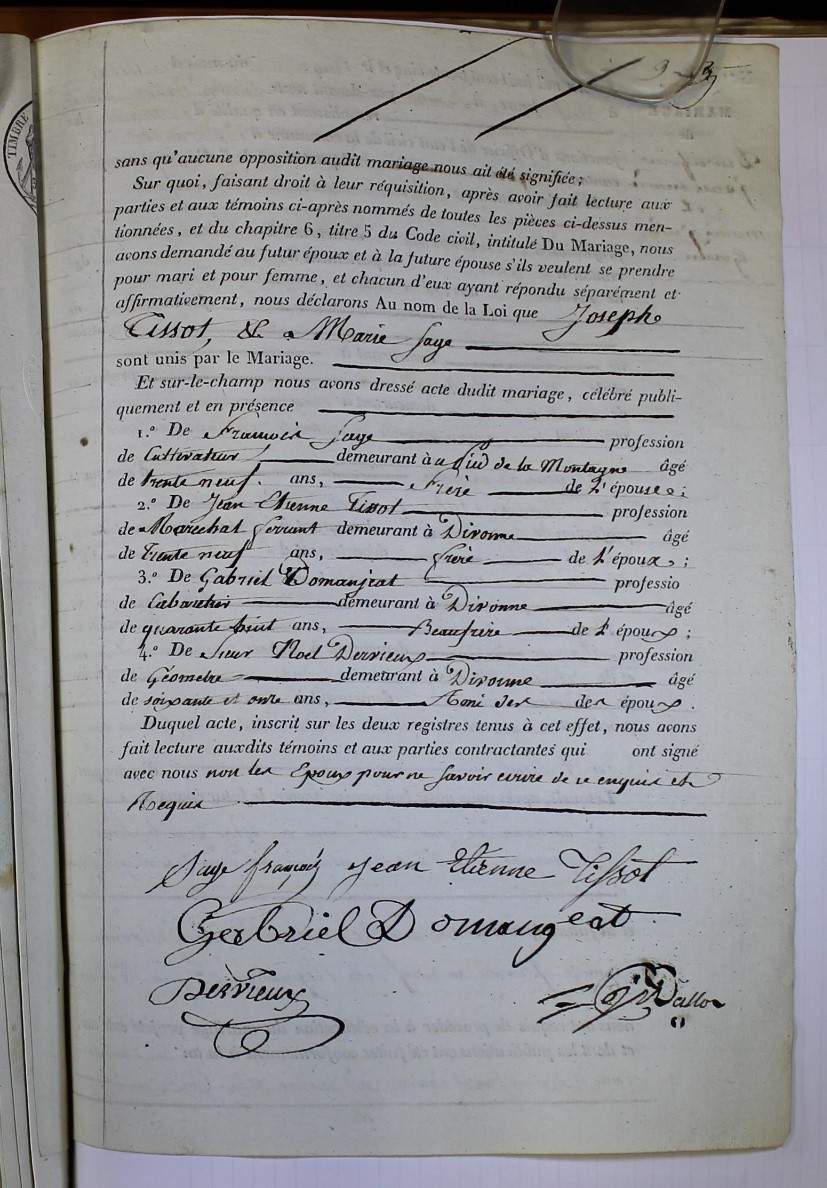 TIMBRE
sans qu'aucune opposition audit mariage nous ait été signifiée;
Sur quoi, faisant droit à leur réquisition, après avoir fait lecture aux
parties et aux témoins ci-après nommés de toutes les pièces ci-dessus men-
tionnées, et du chapitre 6, titre 5 du Code civil, intitulé Du Mariage, nous
avons demandé au futur époux et à la future épouse s'ils veulent se prendre
pour mari et pour femme, et chacun d'eux ayant répondu séparément et
affirmativement, nous déclarons Au nom de la Loi que Joseph
Tissot, & Marie Saye
sont unis par le Mariage.
Et sur-le-champ nous avons dressé acte dudit mariage, célébré publi-
quement et en présence
1.° De François Saye profession
de Cultivateur demeurant à au pied de la Montagne âgé
de trente neuf ans, frère de l'épouse;
2.° De Jean Etienne Tissot profession
de Marechal ferrant demeurant à Divonne âgé
de trente neuf ans, frère de l'époux;
3.° De Gabriel Domanjeat professio
de Cabaretier demeurant à Divonne âgé
de quarante huit ans, Beaufrère de l'époux;
4.° De Sieur Noel Dervieux profession
de Géometre demeurant à Divonne âgé
de soixante et onze ans, Ami des des époux.
Duquel acte, inscrit sur les deux registres tenus à cet effet, nous avons
fait lecture auxdits témoins et aux parties contractantes qui ont signé
avec nous non les Epoux pour ne savoir ecrire de ce enquis et
Requis
Saye françois Jean Etienne Tissot
Gabriel Domangeat
Dervieux